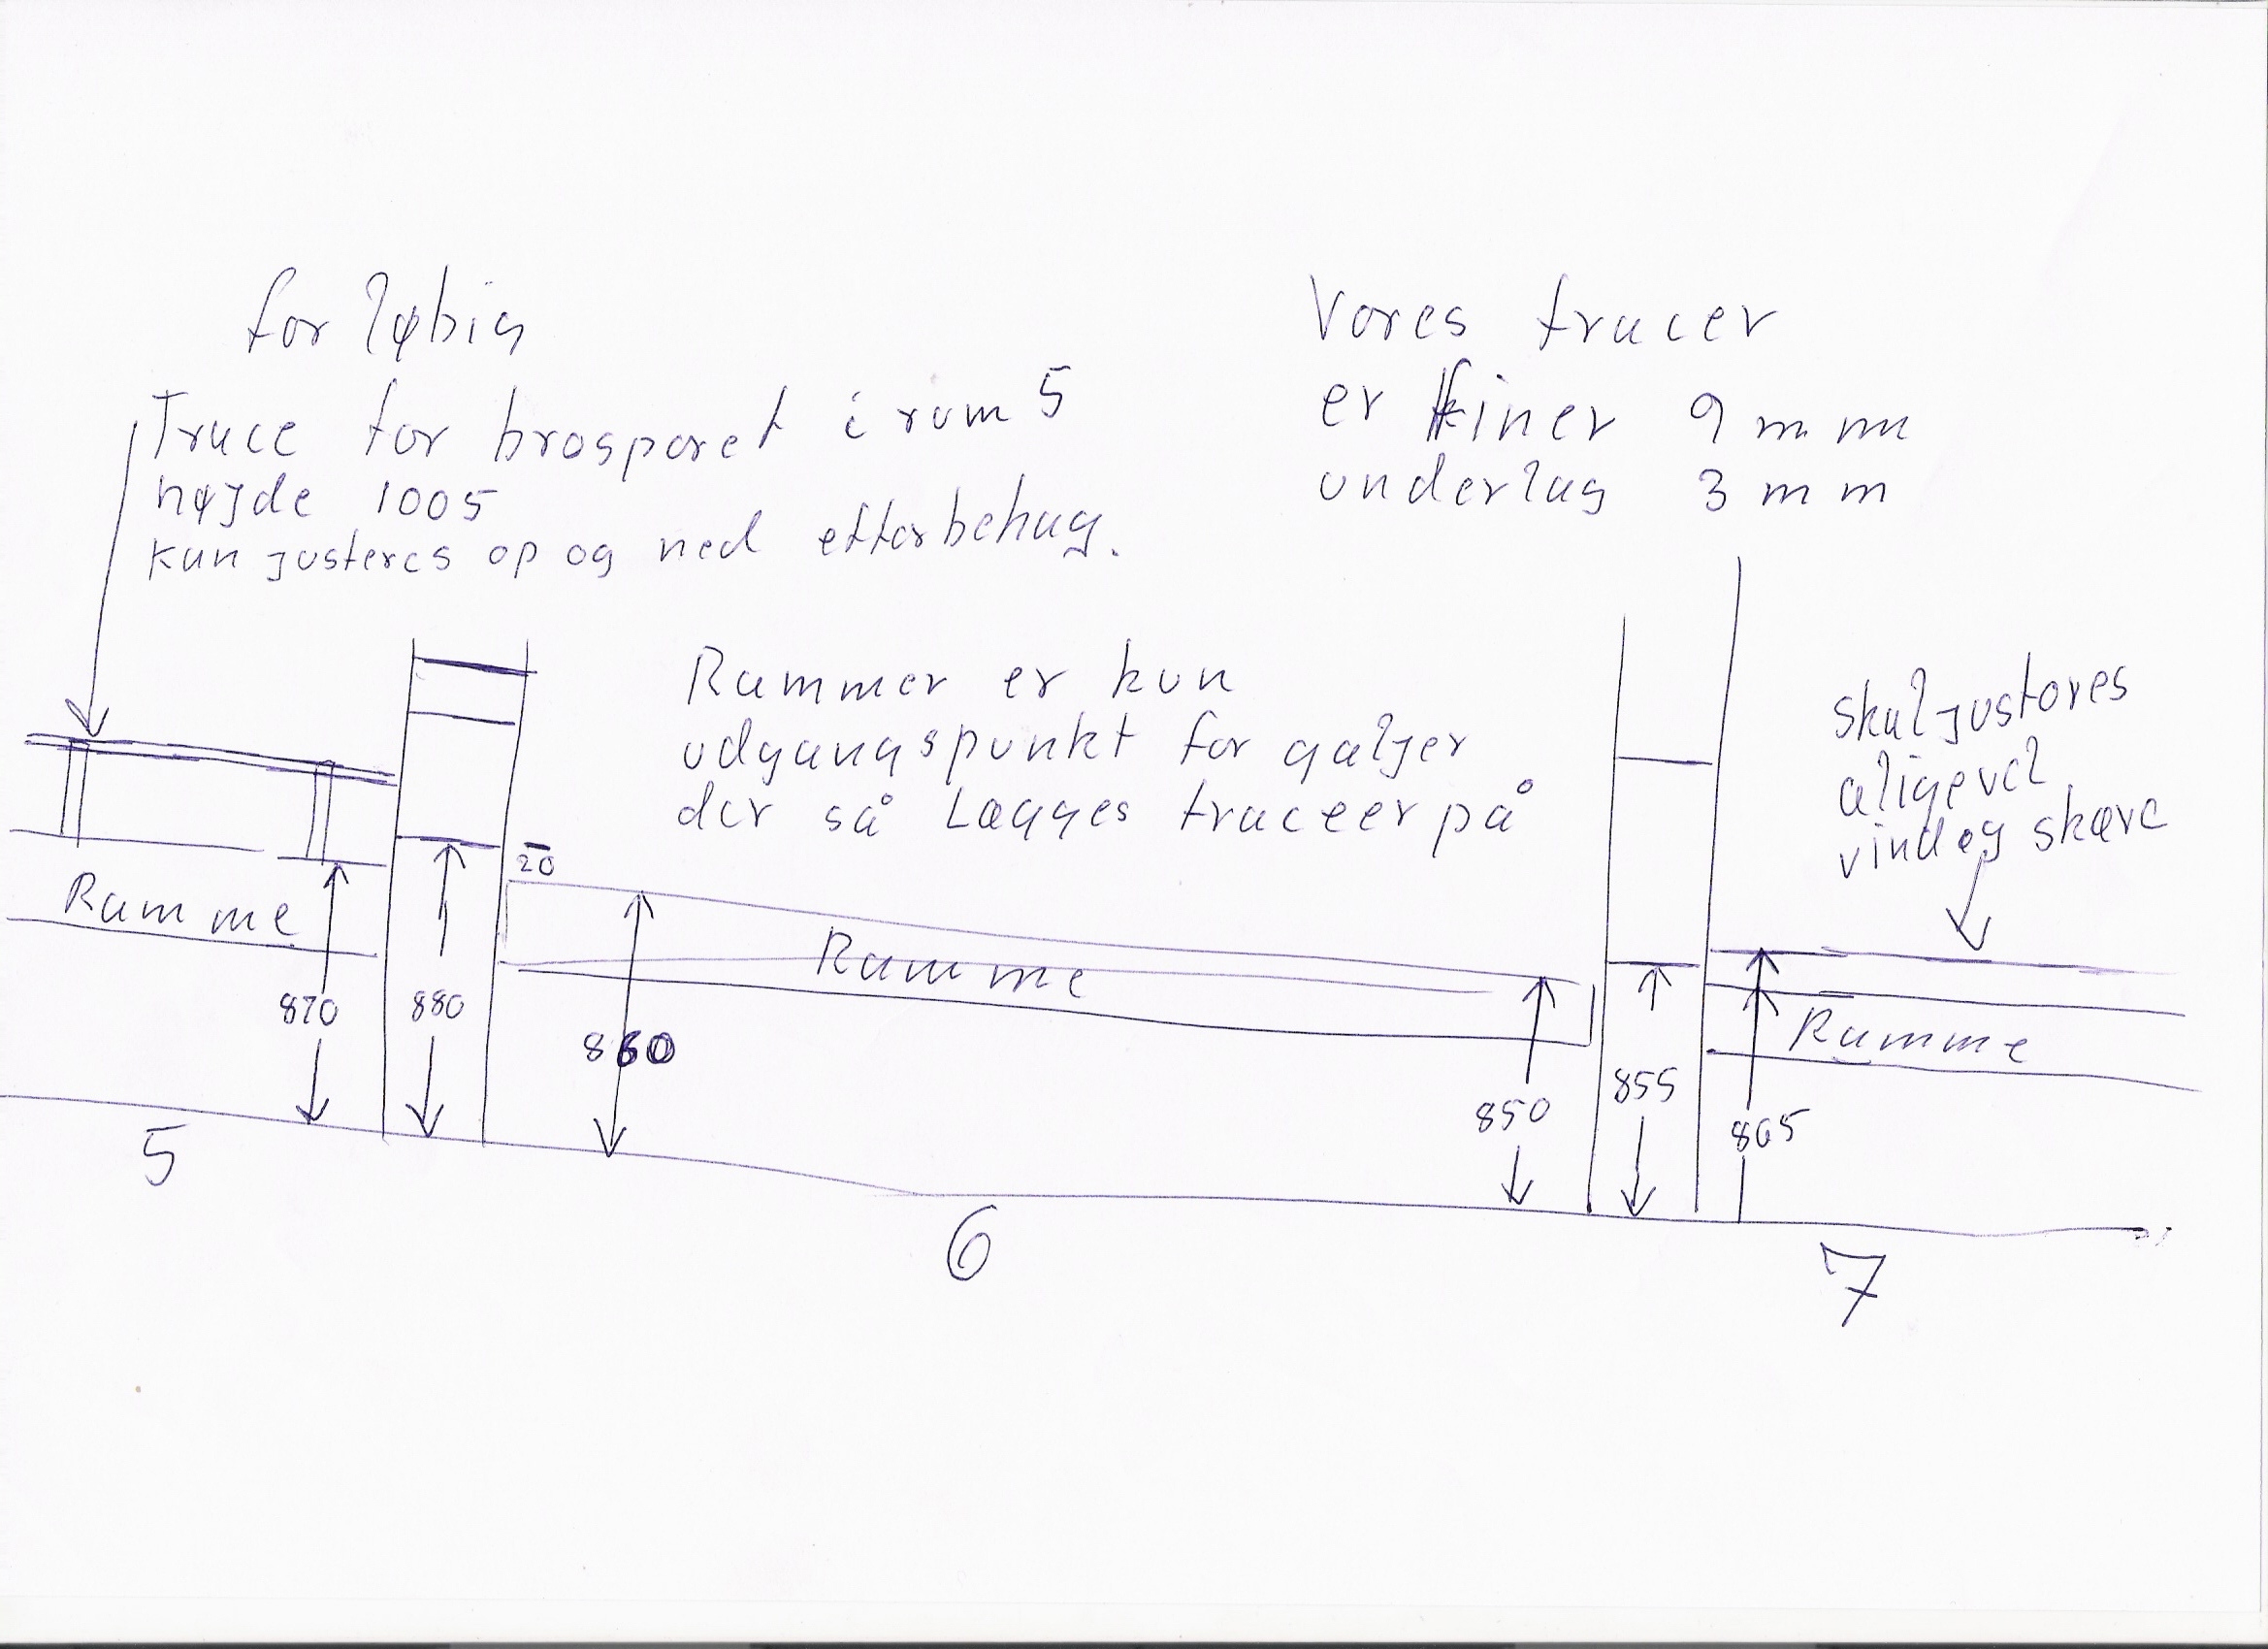 for løbig
Trace for brosporet i rum 5
højde 1005
kan justeres op og ned efter behag.
Vores tracer
er finer 9 mm
underlag 3 mm
Rammer er kun
udgangspunkt for galjer
der så Lægges traceer på
skal justeres
aligevel
vind og skæve
20
Ramme
Ramme
Ramme
870
880
860
850
855
865
5
6
7